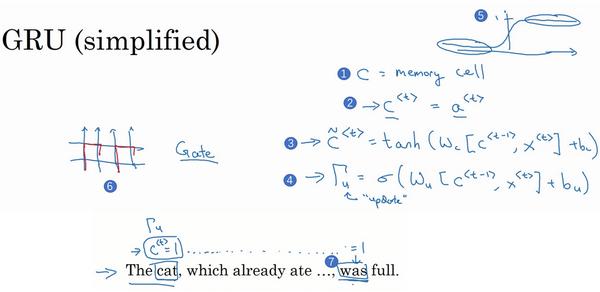 GRU (simplified)
5
1 C = memory cell
2 → C^{<t>} = a^{<t>}
3 → C̃^{<t>} = tanh (W_c [C^{<t-1>}, x^{<t>}] + b_c)
4 → Γ_u = σ (W_u [C^{<t-1>}, x^{<t>}] + b_u)
"update"
Gate
6
Γ_u
→ C^{<t>} = 1 ........ = 1
7
→ The cat, which already ate …, was full.